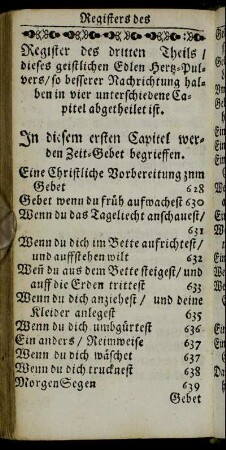 Registers des
Register des dritten Theils /
dieses geistlichen Edlen Hertz-Pul-
vers / so besserer Nachrichtung hal-
ben in vier unterschiedene Ca-
pitel abgetheilet ist.
In diesem ersten Capitel wer-
den Zeit-Gebet begrieffen.
Eine Christliche Vorbereitung znm
Gebet 628
Gebet wenn du früh aufwachest 630
Wenn du das Tageliecht anschauest /
631
Wenn du dich im Bette aufrichtest /
und auffstehen wilt 632
Weñ du aus dem Bette steigest / und
auff die Erden trittest 633
Wenn du dich anziehest / und deine
Kleider anlegest 635
Wenn du dich umbgürtest 636
Ein anders / Reimweise 637
Wenn du dich wäschet 637
Wenn du dich trucknest 638
MorgenSegen 639
Gebet